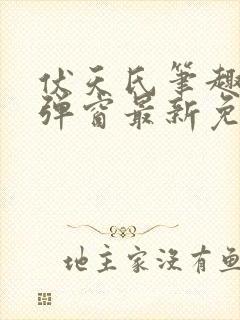 伏天氏笔趣
弹窗最新免
地主家没有鱼